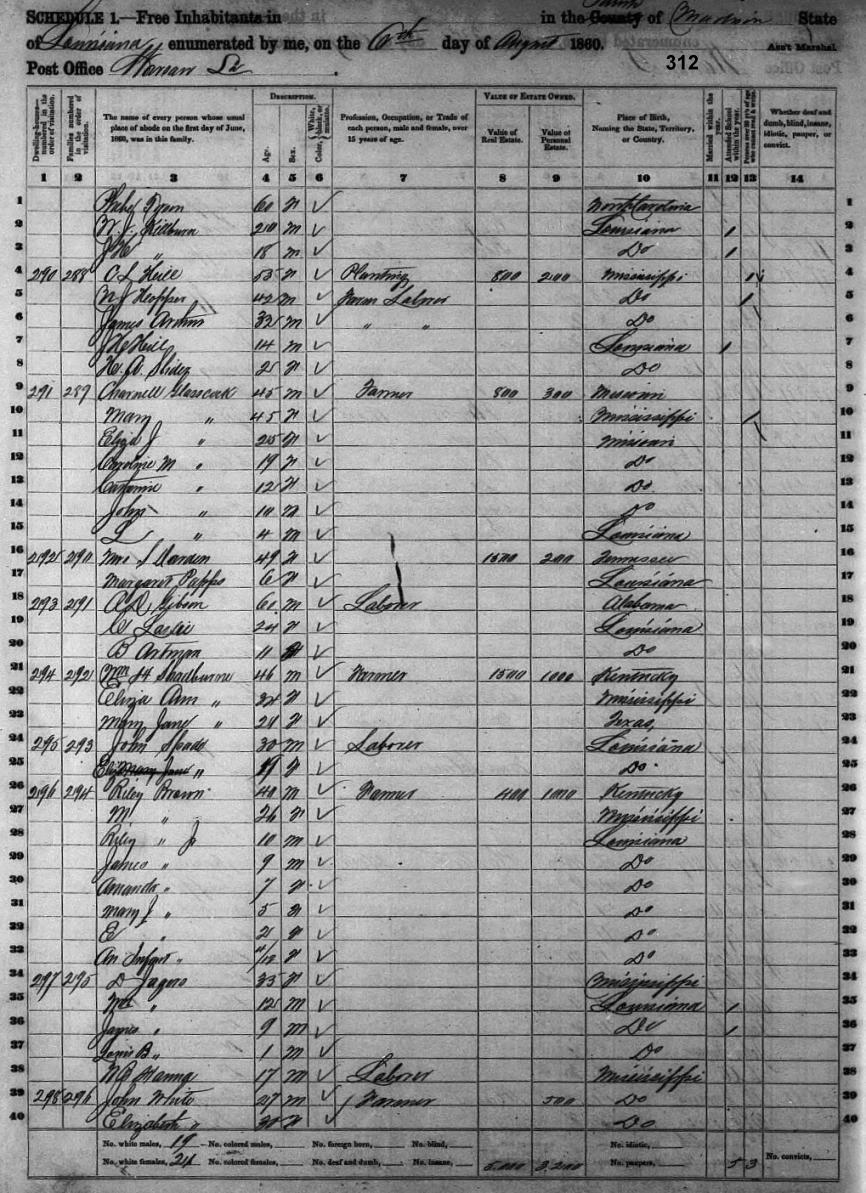 SCHEDULE 1.—Free Inhabitants in in the County Parish of Madison State
of Louisiana enumerated by me, on the 6th day of August 1860. Ass't Marshal.
Post Office Warsaw La 312
Dwelling-houses—numbered in the order of visitation. Families numbered in the order of visitation. The name of every person whose usual place of abode on the first day of June, 1860, was in this family. DESCRIPTION. Age. Sex. Color, White, black, or mulatto. Profession, Occupation, or Trade of each person, male and female, over 15 years of age. VALUE OF ESTATE OWNED. Value of Real Estate. Value of Personal Estate. Place of Birth, Naming the State, Territory, or Country. Married within the year. Attended School within the year. Persons over 20 y'rs of age who cannot read & write. Whether deaf and dumb, blind, insane, idiotic, pauper, or convict.
1 2 3 4 5 6 7 8 9 10 11 12 13 14
1 60 f ✓ North Carolina 1
2 Kilburn 20 m ✓ Louisiana / 2
3 " 18 m ✓ Do / 3
4 290 288 C L 53 f ✓ Planting 800 200 Mississippi / 4
5 Hopper 42 m ✓ Farm Labor Do / 5
6 James 32 m ✓ " " Do 6
7 14 m ✓ Louisiana / 7
8 2 f ✓ Do 8
9 291 289 Charnell Glasscock 45 m ✓ Farmer 800 300 Missouri 9
10 Mary " 45 f ✓ Mississippi / 10
11 Eliza J " 20 f ✓ Missouri 11
12 Caroline M " 19 f ✓ Do 12
13 Catharine " 12 f ✓ Do 13
14 John " 10 m ✓ Do 14
15 L " 4 m ✓ Louisiana 15
16 292 290 Mrs S 49 f ✓ 1500 200 Tennessee 16
17 Margaret 6 f ✓ Louisiana 17
18 293 291 A D Gibson 60 m ✓ Laborer Alabama 18
19 C Leslie 24 f ✓ Louisiana 19
20 B 11 f ✓ Do 20
21 294 292 Wm H Shadburne 46 m ✓ Farmer 1500 1000 Kentucky 21
22 Eliza Ann " 34 f ✓ Mississippi 22
23 Mary Jane " 20 f ✓ Texas 23
24 295 293 John 30 m ✓ Laborer Louisiana 24
25 Mary Jane " 19 f ✓ Do 25
26 296 294 Riley Brown 40 m ✓ Farmer 400 1000 Kentucky 26
27 M " 26 f ✓ Mississippi 27
28 Riley " Jr 10 m ✓ Louisiana 28
29 James " 9 m ✓ Do 29
30 Amanda " 7 f ✓ Do 30
31 Mary J " 5 f ✓ Do 31
32 E " 2 f ✓ Do 32
33 An Infant " f ✓ Do 33
34 297 295 D Jagers 35 f ✓ Mississippi 34
35 Wm " 12 m ✓ Louisiana / 35
36 James " 9 m ✓ Do / 36
37 Louis B " 1 m ✓ Do 37
38 Hanna 17 m ✓ Laborer Mississippi 38
39 298 296 John White 27 m ✓ Farmer 500 Do 39
40 Elizabeth " 30 f ✓ Do 40
No. white males, 19 No. colored males, No. foreign born, No. blind, No. idiotic,
No. white females, 21 No. colored females, No. deaf and dumb, No. insane, No. paupers, 5 3 No. convicts,